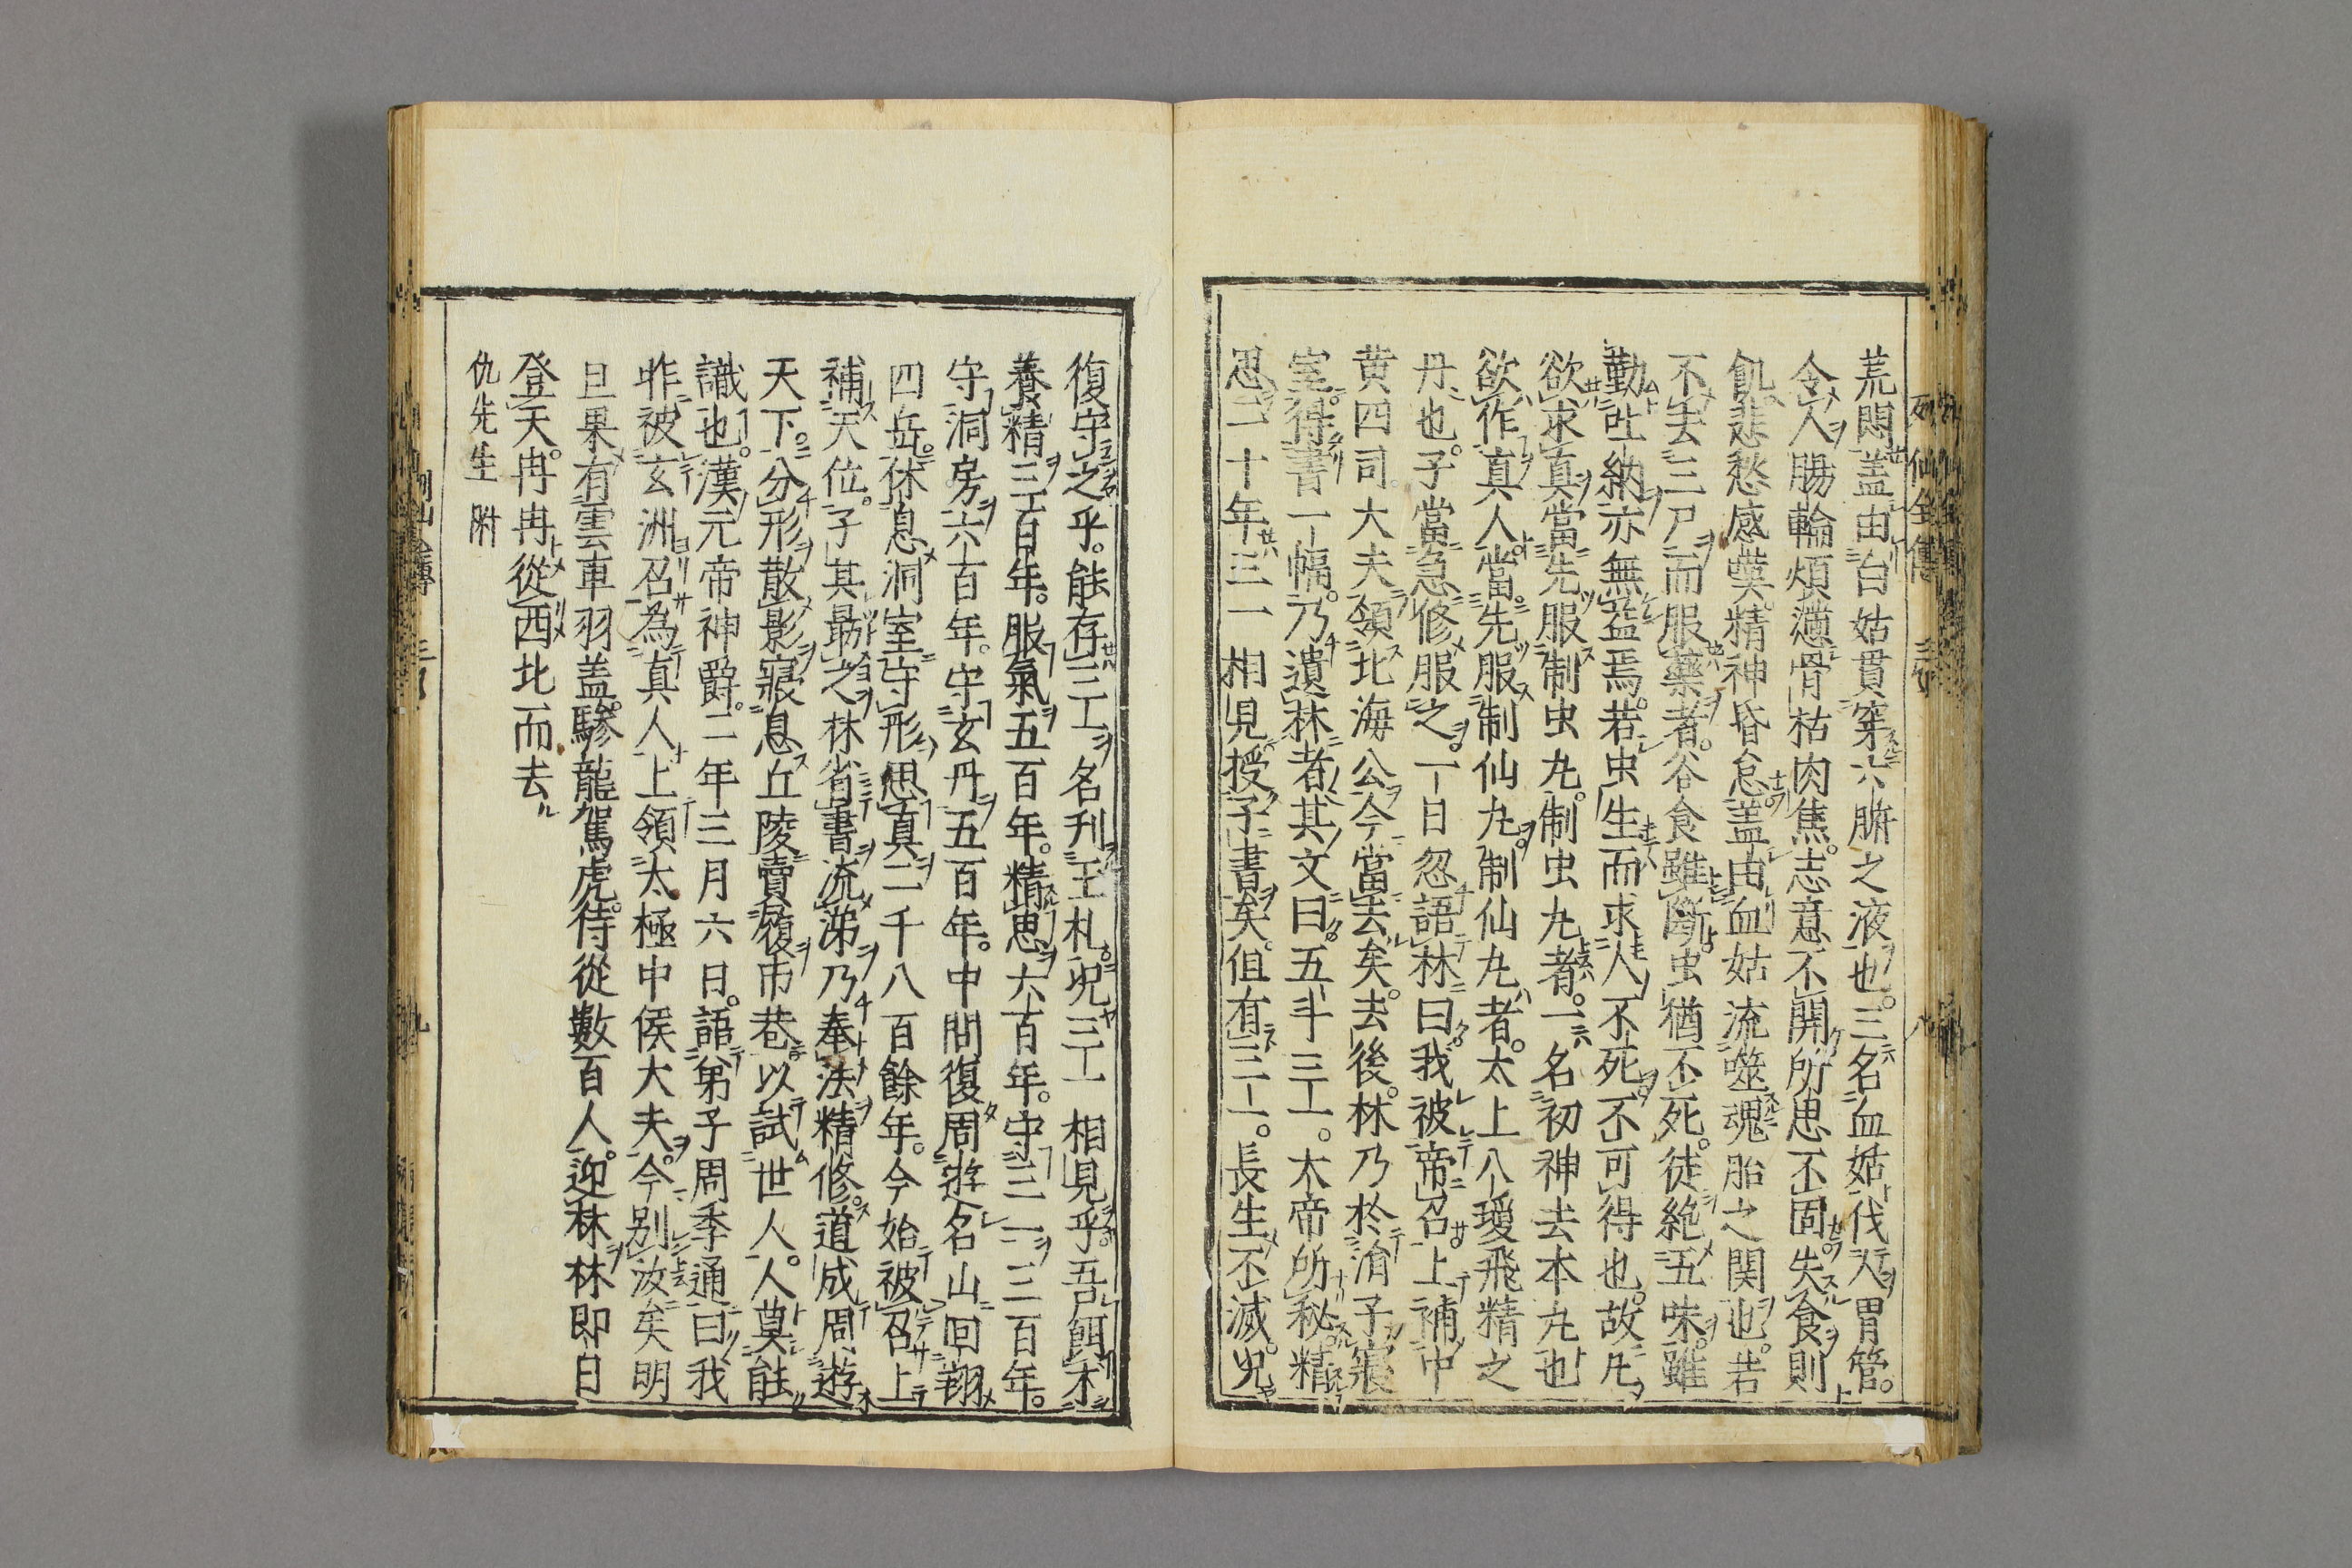 荒悶盖由白姑貫穿六腑之液也。三名血姑伐人胃管。
令人膓輪煩懣骨枯肉焦。志意不開所思不固失食則
飢悲愁感嘆。精神昏怠盖由血姑流噬魂胎之関也。若
不去三尸而服藥者。谷食雖断虫猶不死。徒絶五味。雖
勤吐納亦無益焉。若虫生而求人不死不可得也。故凡
欲求真當先服制虫丸。制虫丸者。一名初神去本丸也
欲作真人當。先服制仙丸。制仙丸者。太上八瓊飛精之
丹也。子當急修服之。一日忽語林曰我被帝召上補中
黄四司大夫領北海公今當去矣。去後。林乃於涓子寢
室。得書一幅。乃遺林者其文曰。五斗三一。太帝所秘。精
思二十年三一相見授子書矣。但有三一。長生不滅。况
復守之乎。能存三一名刊玉札况三一相見乎。吾餌术
養精三百年。服氣五百年。精思六百年。守三一三百年。
守洞房六百年。守玄丹五百年。中間復周遊名山回翔
四岳。休息洞室守形思真二千八百餘年。今始被召上
補天位。子其勗之林省書流涕乃奉法精修。道成周遊
天下。分形散影寢息丘陵賣履市巷以試世人。人莫能
識也。漢元帝神爵。二年三月六日。語弟子周季通曰我
昨被玄洲召為真人上領太極中侯大夫。今别汝矣明
旦果有雲車羽盖。驂龍駕虎。待從數百人。迎林林即日
登天。冉冉從西北而去
仇先生 附